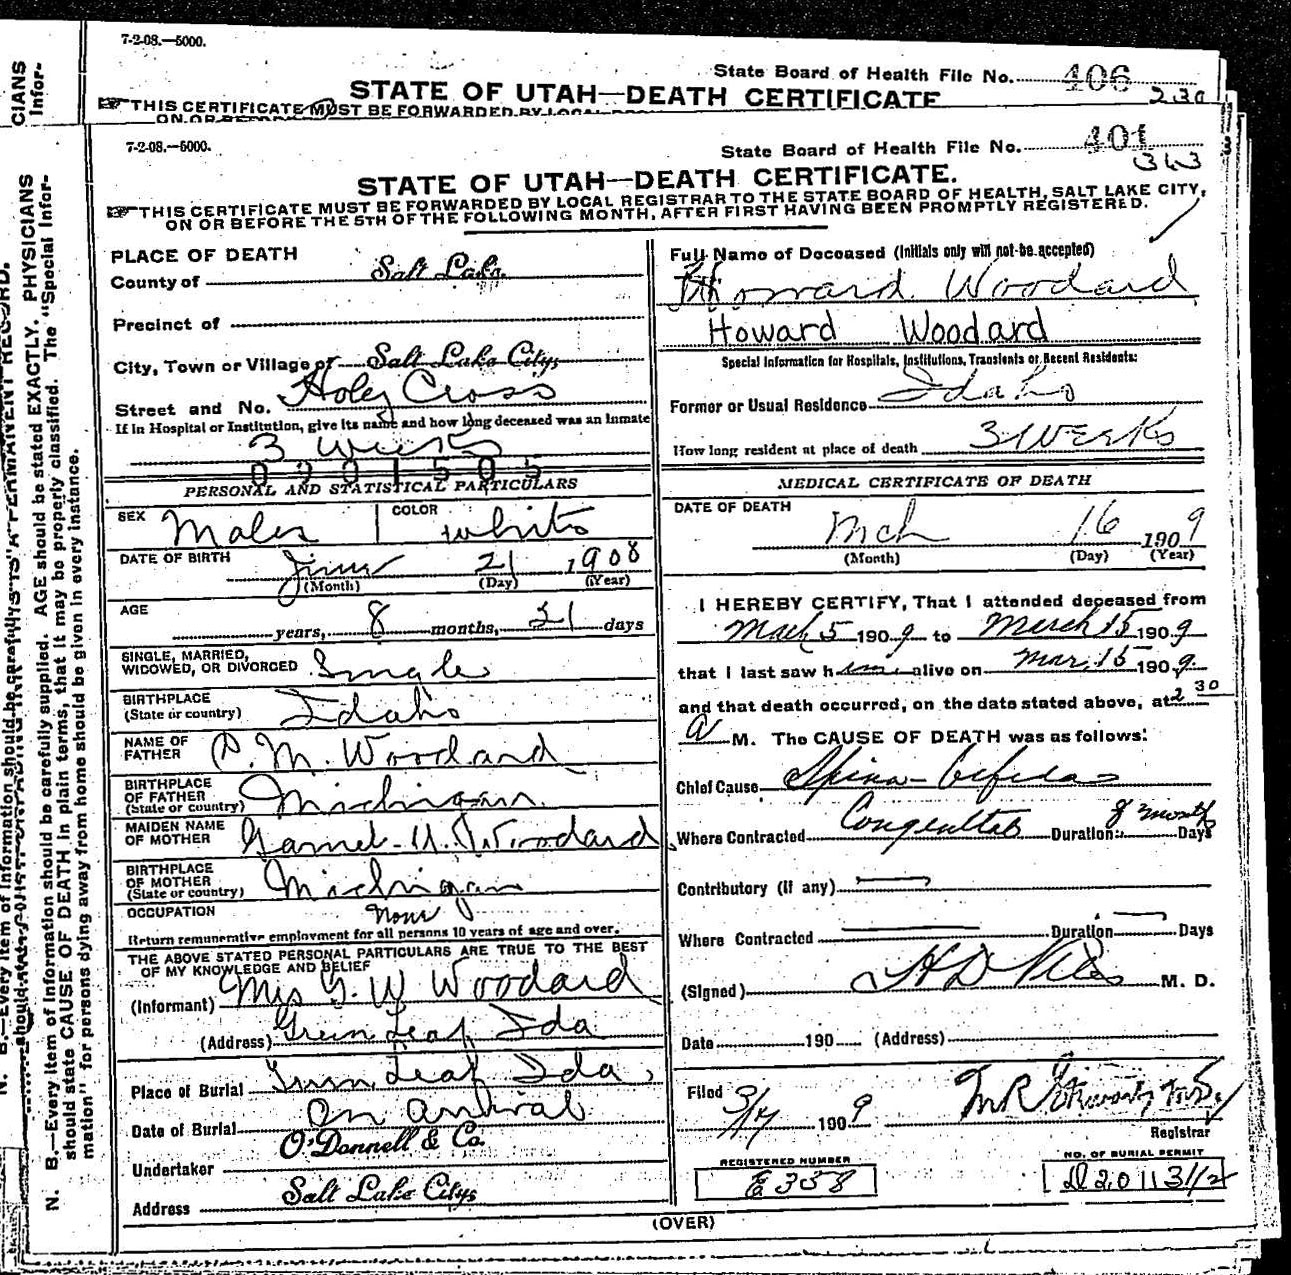 7-2-08.—5000.
State Board of Health File No. 406
STATE OF UTAH—DEATH CERTIFICATE
230
THIS CERTIFICATE MUST BE FORWARDED BY LOCAL
ON OR BEFORE
CIANS
Infor-
7-2-08.—5000.
State Board of Health File No. 401
343
STATE OF UTAH—DEATH CERTIFICATE.
THIS CERTIFICATE MUST BE FORWARDED BY LOCAL REGISTRAR TO THE STATE BOARD OF HEALTH, SALT LAKE CITY,
ON OR BEFORE THE 5TH OF THE FOLLOWING MONTH, AFTER FIRST HAVING BEEN PROMPTLY REGISTERED.
N. B.—Every item of Information should be carefully supplied. AGE should be stated EXACTLY. PHYSICIANS
should state CAUSE OF DEATH in plain terms, that it may be properly classified. The "Special Infor-
mation" for persons dying away from home should be given in every instance.
PLACE OF DEATH
County of Salt Lake
Precinct of
City, Town or Village of Salt Lake City
Street and No. Holy Cross
If in Hospital or Institution, give its name and how long deceased was an Inmate
3 weeks
0301505
PERSONAL AND STATISTICAL PARTICULARS
SEX Male COLOR white
DATE OF BIRTH June 21 1908
(Month) (Day) (Year)
AGE
years, 8 months, 21 days
SINGLE, MARRIED,
WIDOWED, OR DIVORCED Single
BIRTHPLACE
(State or country) Idaho
NAME OF
FATHER M. Woodard
BIRTHPLACE
OF FATHER
(State or country) Michigan
MAIDEN NAME
OF MOTHER Woodard
BIRTHPLACE
OF MOTHER
(State or country) Michigan
OCCUPATION None
Return remunerative employment for all persons 10 years of age and over.
THE ABOVE STATED PERSONAL PARTICULARS ARE TRUE TO THE BEST
OF MY KNOWLEDGE AND BELIEF
(Informant) Mrs G. W Woodard
(Address) Green Leaf Ida
Place of Burial Green Leaf Ida
Date of Burial On arrival
Undertaker O'Donnell & Co.
Address Salt Lake City
Full Name of Deceased (Initials only will not be accepted)
Howard Woodard
Howard Woodard
Special Information for Hospitals, Institutions, Transients or Recent Residents:
Former or Usual Residence Idaho
How long resident at place of death 3 Weeks
MEDICAL CERTIFICATE OF DEATH
DATE OF DEATH
Mch 16 1909
(Month) (Day) (Year)
I HEREBY CERTIFY, That I attended deceased from
Mach 5 1909 to March 15 1909
that I last saw him alive on Mar. 15 1909
and that death occurred, on the date stated above, at 2 30
a M. The CAUSE OF DEATH was as follows:
Chief Cause Spina-bifida
Where Contracted Congenital Duration: 8 months Days
Contributory (if any)
Where Contracted Duration Days
(Signed) H D Niles M. D.
Date 190 (Address)
Filed 3/17 1909
Registrar
REGISTERED NUMBER
E 358
NO. OF BURIAL PERMIT
(OVER)